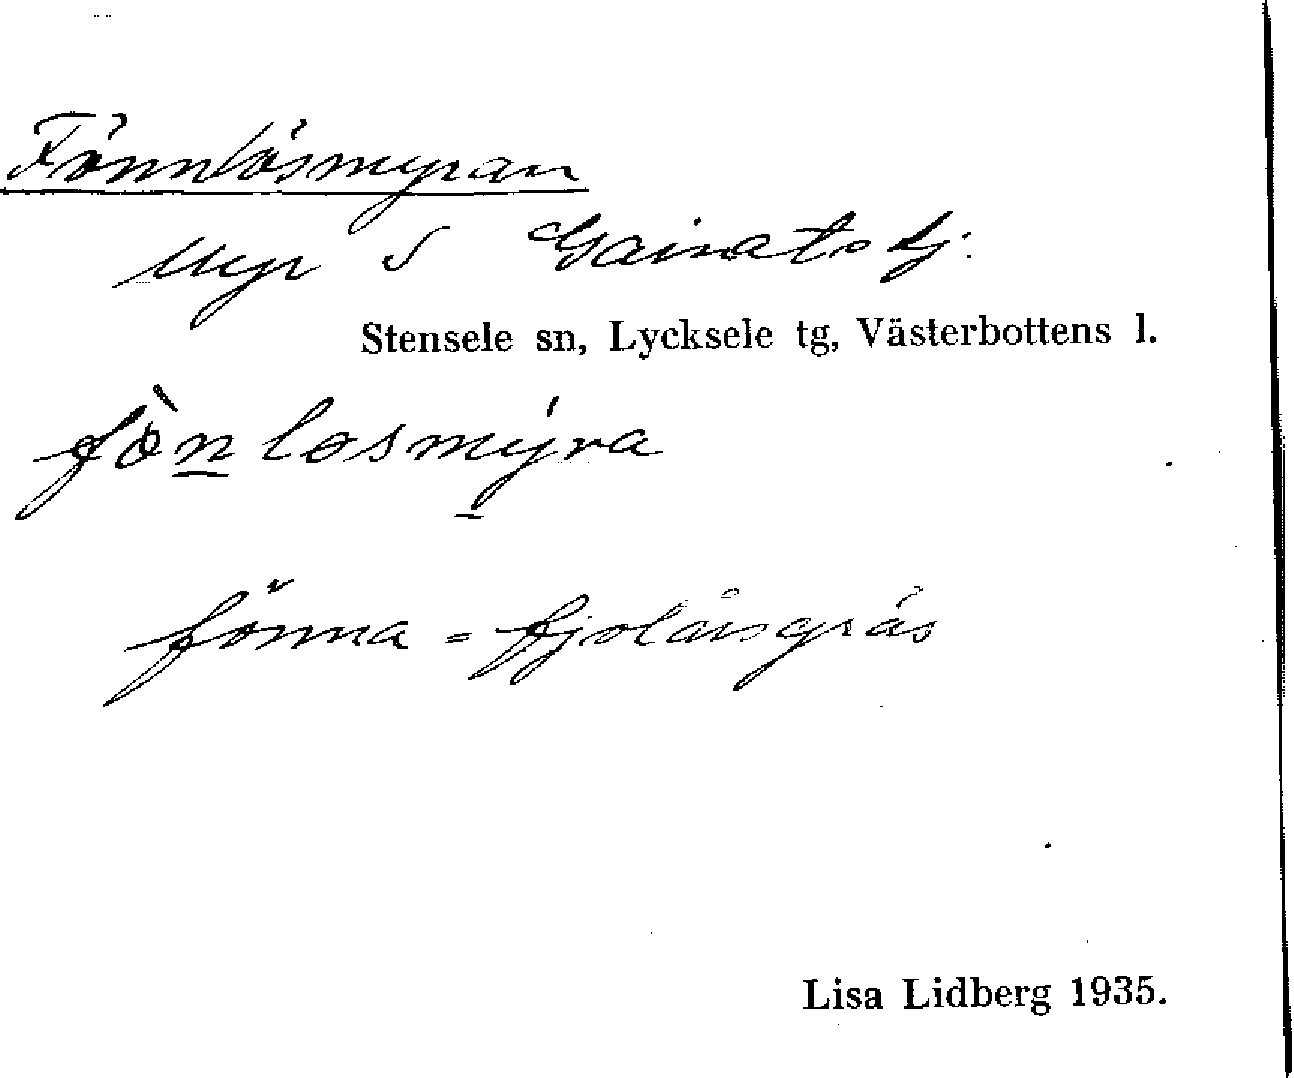 Fönnlösmyran
Myr S Gairatstj.
Stensele sn, Lycksele tg, Västerbottens l.
fö̀nlosmýra
fönna = fjolårsgräs
Lisa Lidberg 1935.